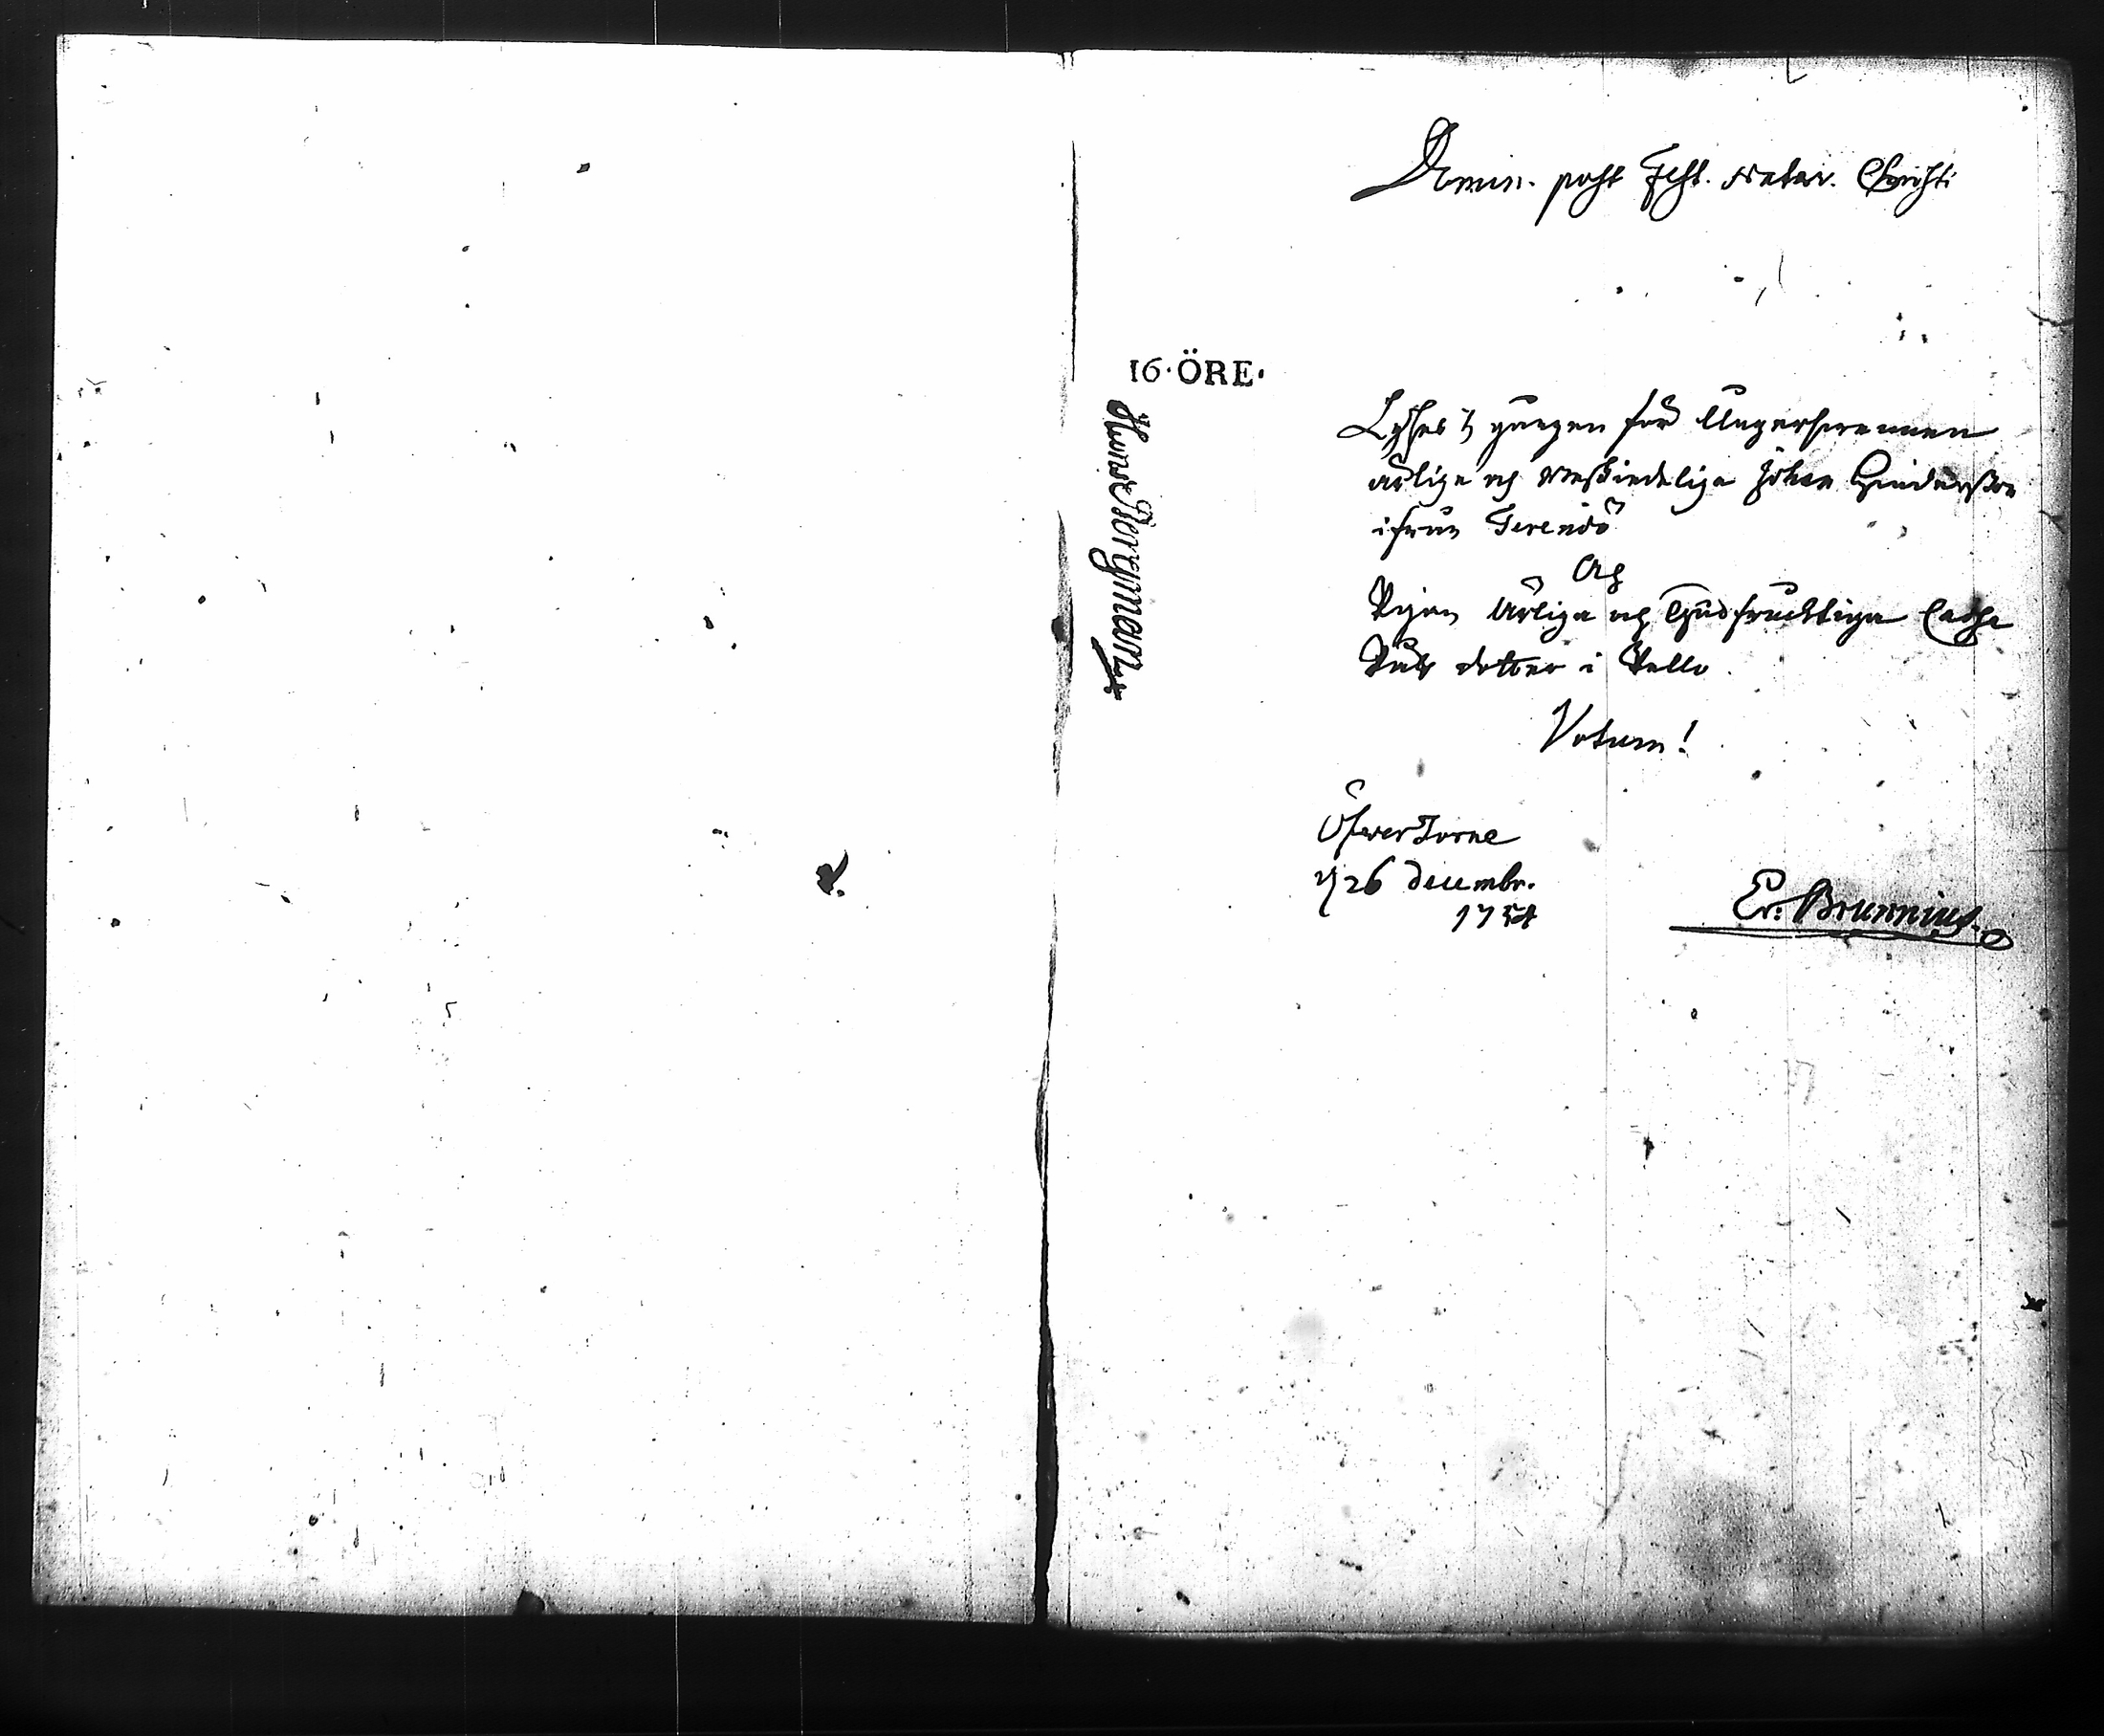 Domin. post Fest. natav. Christi
16. ÖRE.
Hans Bergman
Lyses 3 gången för Ungersvennen
ärlige och Beskiedelige Johan Hindersson
ifrån Terendö
Och
Pigan Ärliga och Gudfrucktiga Carja
Påls dotter i Pello.
Votum!
Öfwer Torne
d 26 decembr.
1754
Er: Brunnius.